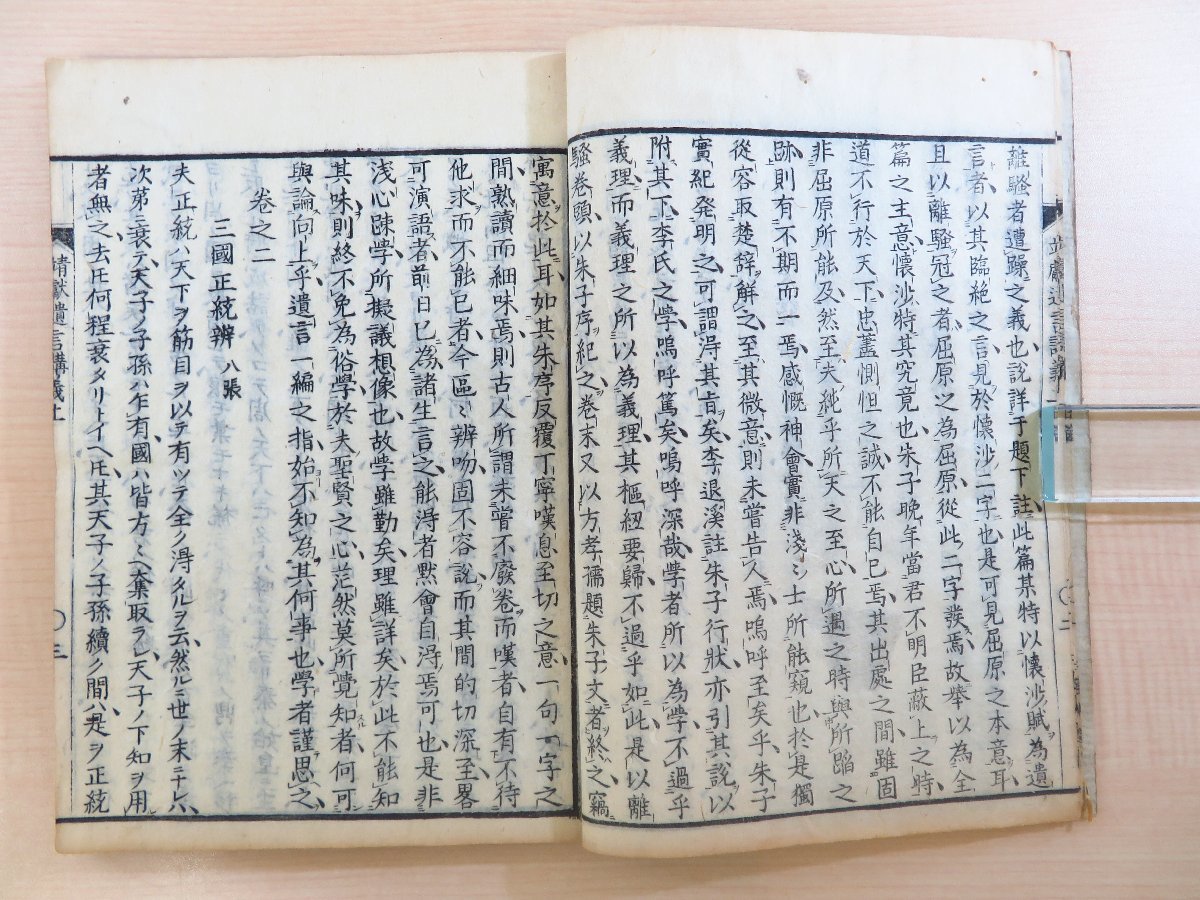 離騷者遭躁之義也說詳于題下註此篇某特以懷沙賦為遺
言者以其臨絶之言見於懷沙二字也是可見屈原之本意耳
且以離騷冠之者屈原之為屈原從此二字發焉故舉以為全
篇之主意懷沙特其究竟也朱子晚年當君不明臣蔽上之時
道不行於天下忠藎惻怛之誠不能自已焉其出處之間雖固
非屈原所能及然至夫純乎所天之至心所遇之時與所蹈之
跡則有不期而一焉感慨神會實非淺々士所能窺也於是獨
從容取楚辭解之至其微意則未嘗告人焉嗚呼至矣乎朱子
實紀発明之可謂淂其旨矣李退溪註朱子行狀亦引其說以
附其下李氏之學嗚呼篤矣嗚呼深哉學者所以為學不過乎
義理而義理之所以為義理其樞紐要歸不過乎如此是以離
騷卷頭以朱子序紀之卷末又以方孝孺題朱子文者終之竊
寓意於此耳如其朱序反覆丁寧嘆息至切之意一句一字之
間熟讀而細味焉則古人所謂未嘗不廢卷而嘆者自有不待
他求而不能已者今區々辨吻固不容說而其間的切深至畧
可演語者前日已為諸生言之能淂者默會自淂焉可也是非
浅心踈學所擬議想像也故學雖勤矣理雖詳矣於此不能知
其味則終不免為俗學於夫聖賢之心茫然莫所覺知者何可
與論向上乎遺言一編之指始不知為其何事也學者謹思之
卷之二
三國正統辨 八張
夫正統ハ天下ヲ筋目ヲ以テ有ツテ全ク淂タルヲ云然ルニ世ノ末ニナレハ
次第ニ衰テ天子ノ子孫ハ乍有國ハ皆方々ヘ棄取ラレ天子ノ下知ヲ用
者無之去𪜈何程衰タリトイヘ𪜈其天子ノ子孫續ク間ハ是ヲ正統
靖獻遺言講義上
〇三